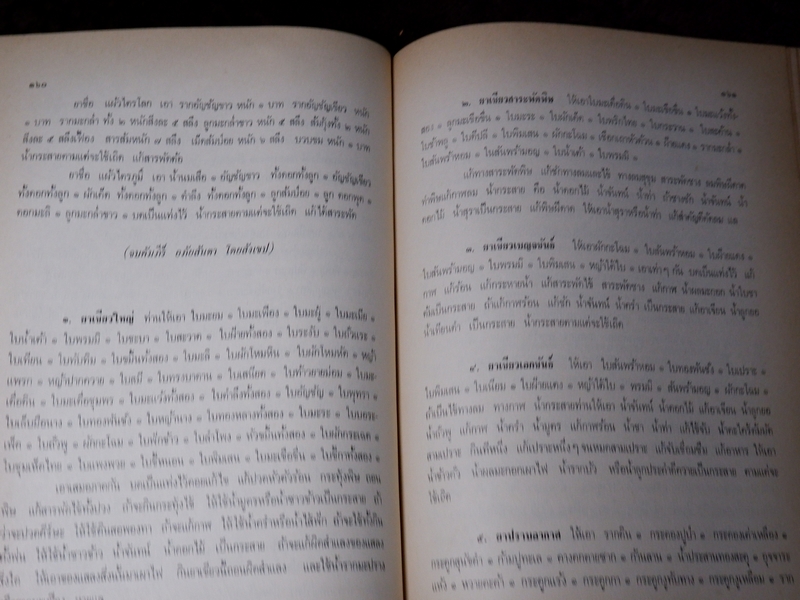 ๑๖๐
ยาชื่อ แผ้วไตรโลก เอา รากอัญชัญขาว หนัก ๑ บาท รากอัญชัญเขียว หนัก
๑ บาท รากมะกล่ำ ทั้ง ๒ หนักสิ่งละ ๕ สลึง ลูกมะกล่ำขาว หนัก ๕ สลึง ส้มกุ้งทั้ง ๒ หนัก
สิ่งละ ๕ สลึงเฟื้อง สารส้มหนัก ๗ สลึง เม็ดส้มป่อย หนัก ๖ สลึง บวบขม หนัก ๑ บาท
น้ำกระสายตามแต่จะใช้เถิด แก้สารพัดต้อ
ยาชื่อ แผ้วไตรภูมิ์ เอา น้ำนมเสือ ๑ อัญชัญขาว ทั้งดอกทั้งลูก ๑ อัญชัญเขียว
ทั้งดอกทั้งลูก ๑ ผักเค็ด ทั้งดอกทั้งลูก ๑ ตำลึง ทั้งดอกทั้งลูก ๑ ลูกส้มป่อย ๑ ลูก ดอกพุด ๑
ดอกมะลิ ๑ ลูกมะกล่ำขาว ๑ บดเป็นแท่งไว้ น้ำกระสายตามแต่จะใช้เถิด แก้ได้สารพัด
(จบคัมภีร์ อภัยสันตา โดยสังเขป)
๑. ยาเขียวใหญ่ ท่านให้เอา ใบมะยม ๑ ใบมะเฟือง ๑ ใบมะฝู่ ๑ ใบมะเมีย ๑
ใบน้ำเต้า ๑ ใบพรมมิ ๑ ใบชะบา ๑ ใบสะวาด ๑ ใบฝ้ายทั้งสอง ๑ ใบระงับ ๑ ใบถั่วแระ ๑
ใบเทียน ๑ ใบทับทิม ๑ ใบขมิ้นทั้งสอง ๑ ใบมะลิ ๑ ใบผักโหมหิน ๑ ใบผักโหมหัด ๑ หญ้า
แพรก ๑ หญ้าปากควาย ๑ ใบสมี ๑ ใบทรงบาดาน ๑ ใบเสนียด ๑ ใบท้าวยายม่อม ๑ ใบมะ-
เดื่อดิน ๑ ใบมะเดื่อชุมพร ๑ ใบมะแว้งทั้งสอง ๑ ใบตำลึงทั้งสอง ๑ ใบอัญชัญ ๑ ใบพุทรา ๑
ใบเล็บมือนาง ๑ ใบทองพันชั่ง ๑ ใบหญ้านาง ๑ ใบทองหลางทั้งสอง ๑ ใบมะระ ๑ ใบยอระ-
๑ ใบถั่วพู ๑ ผักกะโฉม ๑ ใบผักข้าว ๑ ใบลำโพง ๑ หัวขมิ้นทั้งสอง ๑ ใบผักกระเฉด ๑
ใบชุมเห็ดไทย ๑ ใบแพงพวย ๑ ใบขี้หนอน ๑ ใบพิมเสน ๑ ใบมะเขือขื่น ๑ ใบฟักทั้งสอง ๑
เอาเสมอภาคกัน บดเป็นแท่งไว้ค่อยแก้ไข แก้ปวดหัวตัวร้อน กระทุ้งพิษ ถอน
พิษ แก้สารพัดไข้ทั้งปวง ถ้าจะกินกระทุ้งไข้ ให้ใช้น้ำมูตรหรือน้ำซาวข้าวเป็นกระสาย ถ้า
ว่าจะปวดศีรษะ ให้ใช้ดินสอพองทา ถ้าจะแก้กาฬ ให้ใช้น้ำคร่ำหรือน้ำไส้ฟัก ถ้าจะใช้ทั้งกิน
ทั้งพ่น ให้ใช้น้ำซาวข้าว น้ำจันทน์ น้ำดอกไม้ เป็นกระสาย ถ้าจะแก้ผิดสำแลงของแสลง
สิ่งใด ให้เอาของแสลงสิ่งนั้นมาเผาไฟ กินยาเขียวนี้ถอนผิดสำแลง และใช้น้ำรากมะปราง
๑๖๑
๒. ยาเขียวสาระพัดพิษ ให้เอาใบมะเดื่อดิน ๑ ใบมะเขือขื่น ๑ ใบมะแว้งทั้ง-
สอง ๑ ลูกมะเขือขื่น ๑ ใบมะระ ๑ ใบผักเค็ด ๑ ใบพริกไทย ๑ ใบกระวาน ๑ ใบสะค้าน ๑
ใบช้าพลู ๑ ใบดีปลี ๑ ใบพิมเสน ๑ ผักกะโฉม ๑ เขียกเถาหัวด้วน ๑ ฝ้ายแดง ๑ รากมะกล่ำ ๑
ใบสันพร้าหอม ๑ ใบสันพร้ามอญ ๑ ใบน้ำเต้า ๑ ใบพรมมิ ๑
แก้ทางสาระพัดพิษ แก้ชักทางลมและไข้ ทางลมสุขุม สาระพัดซาง ลมพิษผีดาด
ทำพิษแก้กาฬลม น้ำกระสาย คือ น้ำดอกไม้ น้ำจันทน์ น้ำท่า ถ้าซางชัก น้ำจันทน์ น้ำ
ดอกไม้ น้ำสุราเป็นกระสาย แก้พิษผีดาด ให้เอาน้ำสุราหรือน้ำท่า แก้สำคัญดีดัดลม แล
๓. ยาเขียวเบญจขันธ์ ให้เอาผักกะโฉม ๑ ใบสันพร้าหอม ๑ ใบฝ้ายแดง ๑
ใบสันพร้ามอญ ๑ ใบพรมมิ ๑ ใบพิมเสน ๑ หญ้าใต้ใบ ๑ เอาเท่าๆ กัน บดเป็นแท่งไว้ แก้
กาฬ แก้ร้อน แก้กระหายน้ำ แก้สาระพัดไข้ สาระพัดซาง แก้กาฬ น้ำผลมะกอก น้ำใบชา
ต้มเป็นกระสาย ถ้าแก้กาฬร้อน แก้ชัก น้ำจันทน์ น้ำคร่ำ เป็นกระสาย แก้อาเจียน น้ำลูกยอ
น้ำเทียนดำ เป็นกระสาย น้ำกระสายตามแต่จะใช้เถิด
๔. ยาเขียวเอกขันธ์ ให้เอา ใบสันพร้าหอม ๑ ใบทองพันชั่ง ๑ ใบเปราะ ๑
ใบพิมเสน ๑ ใบเนียม ๑ ใบฝ้ายแดง ๑ หญ้าใต้ใบ ๑ พรมมิ ๑ สันพร้ามอญ ๑ ผักกะโฉม ๑
ถ้าเป็นไข้ทางลม ทางกาฬ น้ำกระสายท่านให้เอา น้ำจันทน์ น้ำดอกไม้ แก้อาเจียน น้ำลูกยอ
น้ำถั่วพู แก้กาฬ น้ำคร่ำ น้ำมูตร แก้กาฬร้อน น้ำชา น้ำท่า แก้ไข้จับ น้ำตะไคร้งัดมัด
สามเปราะ กินทีหนึ่ง แก้เปราะหนึ่งๆ จนหมดสามเปราะ แก้จับเชื่อมซึม แก้อาหาร ให้เอา
น้ำข้าวคั่ว น้ำผลมะกอกเผาไฟ น้ำรากบัว หรือน้ำลูกประคำดีควายเป็นกระสาย ตามแต่จะ
ใช้เถิด
๕. ยาปราบอากาส ให้เอา รากดิน ๑ กระดองปูป่า ๑ กระดองเต่าเหลือง ๑
กระดูกสุนัขดำ ๑ ก้ามปูทะเล ๑ คางคกตายซาก ๑ ก้นลาน ๑ น้ำประสานทองสะตุ ๑ อุจจาระ
แห้ว ๑ หวายตะค้า ๑ กระดูกแร้ง ๑ กระดูกกา ๑ กระดูกงูทับทาง ๑ กระดูกงูเหลือม ๑ ราก